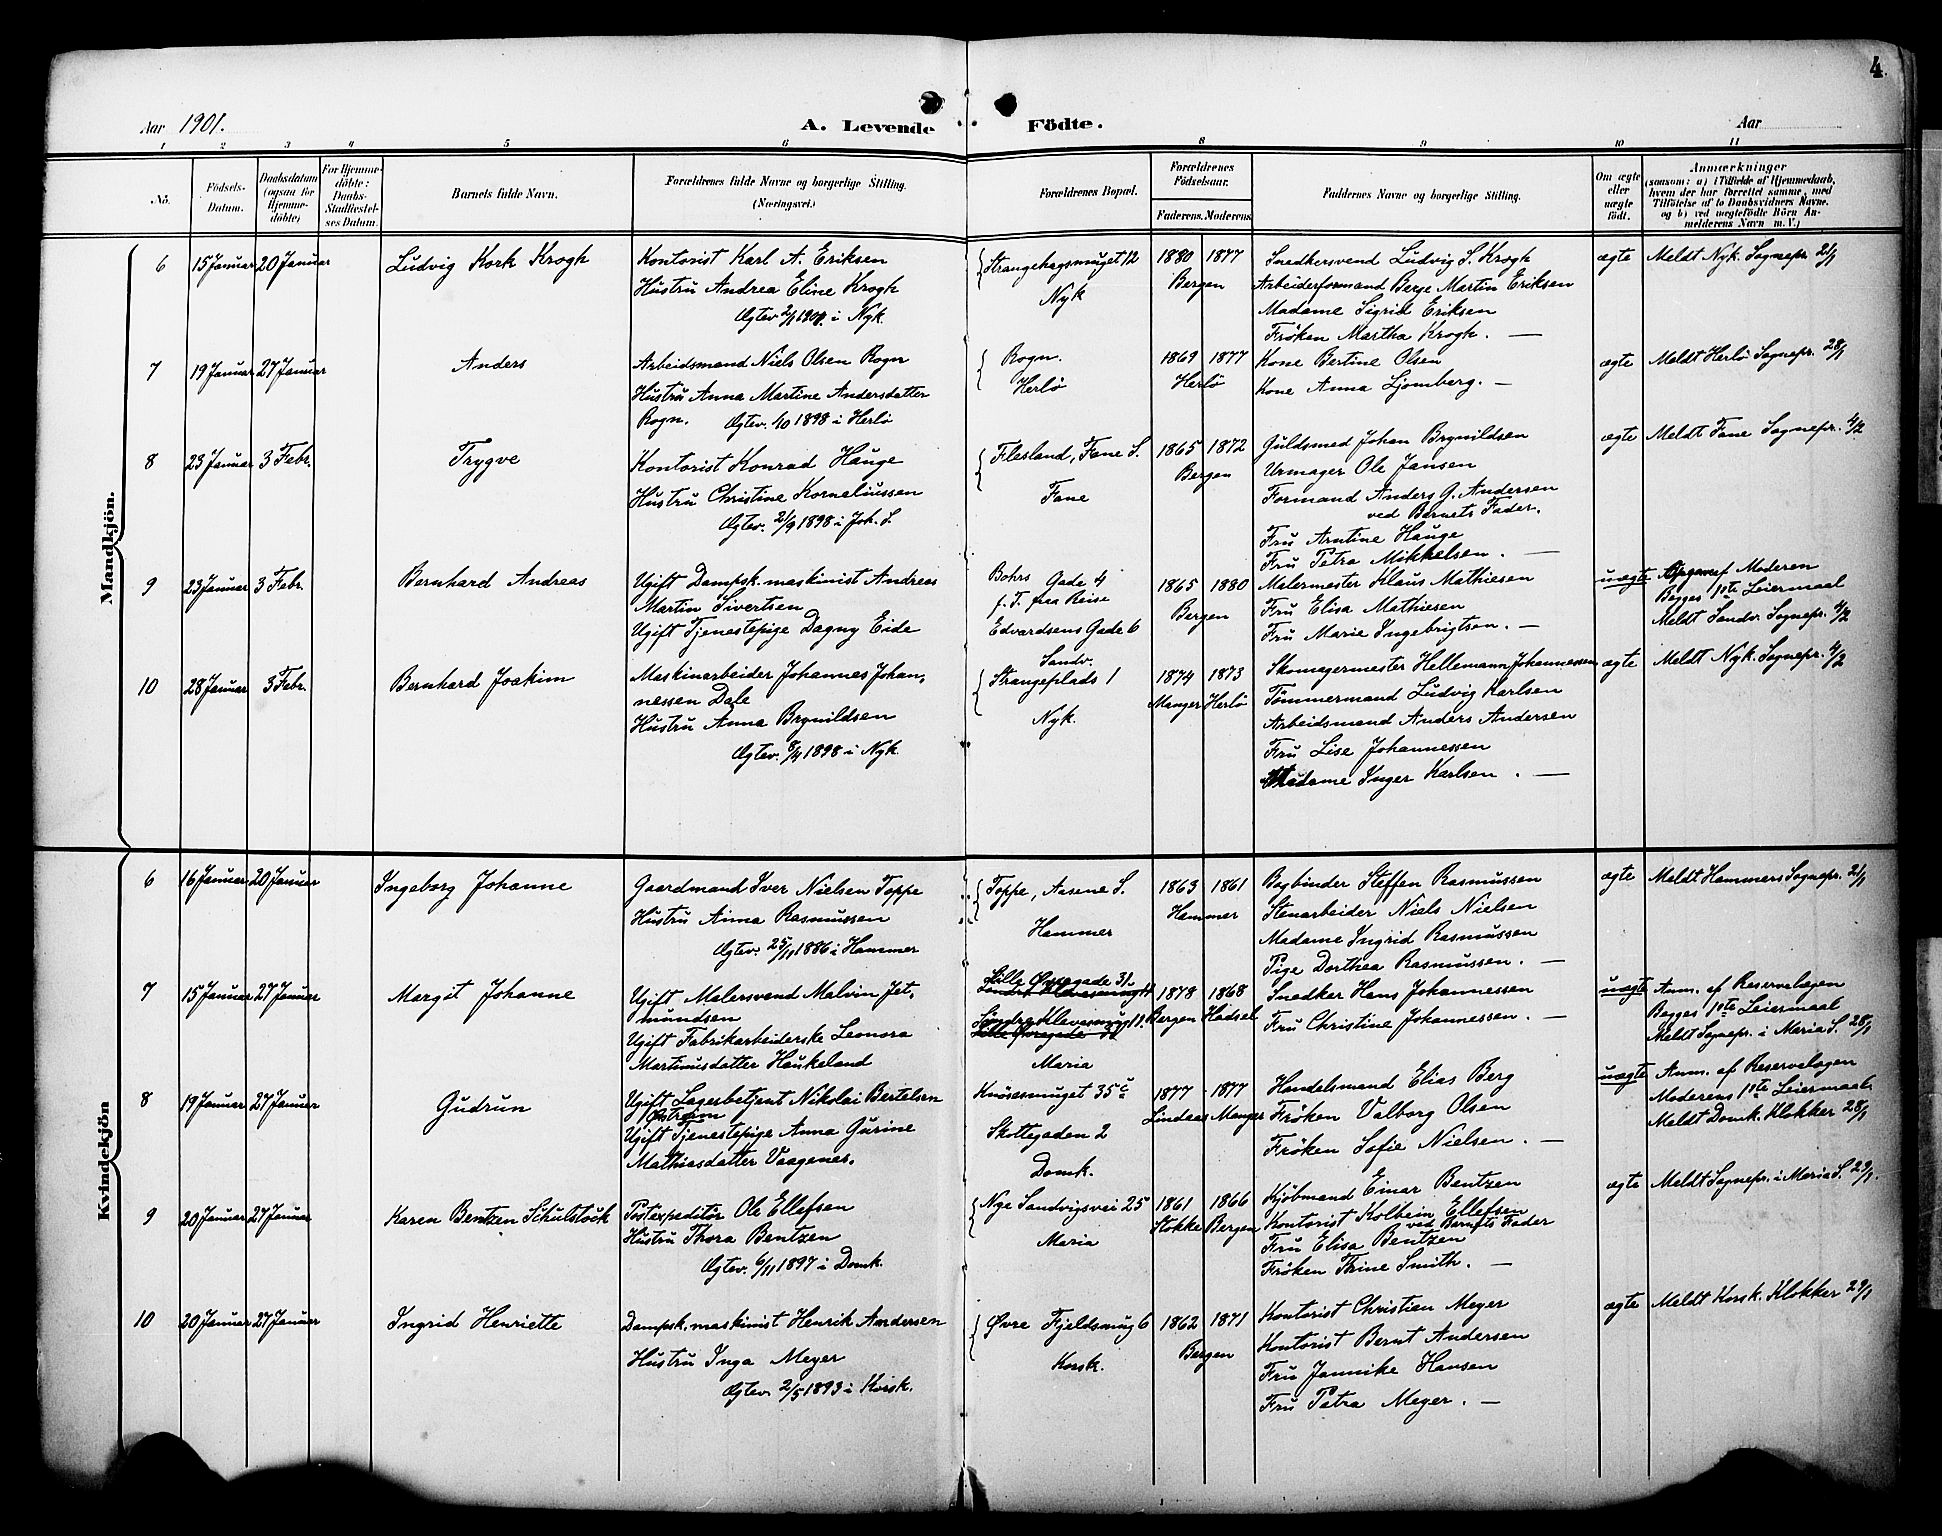 4
Aar 1901.
A. Levende Födte.
Aar
1 2 3 4 5 6 8 9 10 11
No.
Födsels-Datum.
Daabsdatum (ogsaa for Hjemme-döbte)
For Hjemme-döbte: Daabs-Stadfæstel-ses Datum.
Barnets fulde Navn.
Forældrenes fulde Navne og borgerlige Stilling. (Næringsvei.)
Forældrenes Bopæl.
Forældrenes Födselsaar.
Faderens. Moderens
Faddernes Navne og borgerlige Stilling.
Om ægte eller uægte födt.
Anmærkninger
(saasom: a) i Tilfælde af Hjemmedaab, hvem der har forrettet samme, med Tilföielse af to Daabsvidners Navne. og b) ved uægtefödte Börn An-melderens Navn m. V.)
Mandkjön.
6 15 Januar 20 Januar Ludvig Kork Krogh
Kontorist Karl A. Eriksen
Hustru Andrea Eline Krogh
Ægtev. 2/1 1901 i Nyk.
Strangehagsmuget 12
Nyk
1880 1877
Bergen
Snedkersvend Ludvig S. Krogh
Arbeiderformand Berge Martin Eriksen
Madame Sigrid Eriksen
Fröken Martha Krogh. —
ægte Meldt Nyk. Sognepr. 21/1
7 19 Januar 27 Januar Anders
Arbeidsmand Niels Olsen Rogn
Hustru Anna Martine Andersdatter
Rogn. Ægtev. 1/10 1898 i Herlö
Rogn.
Herlö
1869 1877
Herlö
Kone Bertine Olsen
Kone Anna Ljomberg. —
ægte Meldt Herlö Sognepr. 28/1
8 23 Januar 3 Febr. Trygve
Kontorist Konrad Hauge
Hustru Christine Korneliussen
Ægtev. 21/9 1898 i Joh. S.
Flesland, Fane S.
Fane
1865 1872
Bergen
Guldsmed Johan Brynildsen
Urmager Ole Jansen
Formand Anders G. Andersen
ved Barnets Fader.
Fru Arntine Hauge
Fru Petra Mikkelsen. —
ægte Meldt Fane Sognepr. 4/2
9 23 Januar 3 Febr. Bernhard Andreas
Ugift Dampsk. maskinist Andreas
Martin Sivertsen
Ugift Tjenestepige Dagny Eide
Bohrs Gade 4
f. T. paa Reise
Edvardsens Gade 6
Sandv.
1865 1880
Bergen
Malermester Klaus Mathiesen
Fru Elisa Mathiesen
Fru Marie Ingebrigtsen. —
uægte af Moderen
Begges 1ste Leiermaal
Meldt Sandv. Sognepr. 4/2
10 28 Januar 3 Febr. Bernhard Joakim
Maskinarbeider Johannes Johan-
nessen Dale
Hustru Anna Brynildsen
Ægtev. 8/4 1898 i Nyk.
Strangeplads 1
Nyk.
1874 1873
Manger Herlö
Skomagermester Hellemann Johannessen
Tömmermand Ludvig Karlsen
Arbeidsmand Anders Andersen
Fru Lise Johannessen
Madame Inger Karlsen. —
ægte Meldt Nyk. Sognepr. 4/2
Kvindekjön
6 16 Januar 20 Januar Ingeborg Johanne
Gaardmand Iver Nielsen Toppe
Hustru Anna Rasmussen
Ægtev. 25/11 1886 i Hammer
Toppe, Aasene S.
Hammer
1863 1861
Hammer
Bogbinder Steffen Rasmussen
Stenarbeider Niels Nielsen
Madame Ingrid Rasmussen
Pige Dorthea Rasmussen. —
ægte Meldt Hammers Sognepr. 21/1
7 15 Januar 27 Januar Margit Johanne
Ugift Malersvend Malvin Jet-
mundsen
Ugift Fabrikarbeiderske Leonora
Martinusdatter Haukeland
Lille Øvregade 31
Söndre Klevesmug 11.
Maria
1878 1868
Bergen Hadsel
Snedker Hans Johannessen
Fru Christine Johannessen. —
uægte Anm. af Reservelægen
Begges 1ste Leiermaal
Meldt Sognepr. i Maria S. 28/1
8 19 Januar 27 Januar Gudrun
Ugift Lagerbetjent Nikolai Bertelsen
Ostreim
Ugift Tjenestepige Anna Gurine
Mathiasdatter Vaagenes.
Knösesmuget 35c
Skottegaden 2
Domk.
1877 1877
Lindaas Manger
Handelsmand Elias Berg
Fröken Valborg Olsen
Fröken Sofie Nielsen. —
uægte Anm. af Reservelægen
Moderens 1ste Leiermaal
Meldt Domk. Klokker 28/1
9 20 Januar 27 Januar Karen Bentzen Schulstock
Postexpeditör Ole Ellefsen
Hustru Thora Bentzen
Ægtev. 6/11 1897 i Domk.
Nye Sandvigsvei 25
Maria
1861 1866
Stokke Bergen
Kjöbmand Einar Bentzen
Kontorist Kolbein Ellefsen
ved Barnets Fader
Fru Elisa Bentzen
Fröken Thine Smith. —
ægte Meldt Sognepr. i Maria S. 29/1.
10 20 Januar 27 Januar Ingrid Henriette
Dampsk. maskinist Henrik Andersen
Hustru Inga Meyer
Ægtev. 2/5 1893 i Korsk.
Øvre Fjeldsmug 6
Korsk.
1862 1871
Bergen
Kontorist Christian Meyer
Kontorist Bernt Andersen
Fru Jannike Hansen
Fru Petra Meyer. —
ægte Meldt Korsk. Klokker 29/1